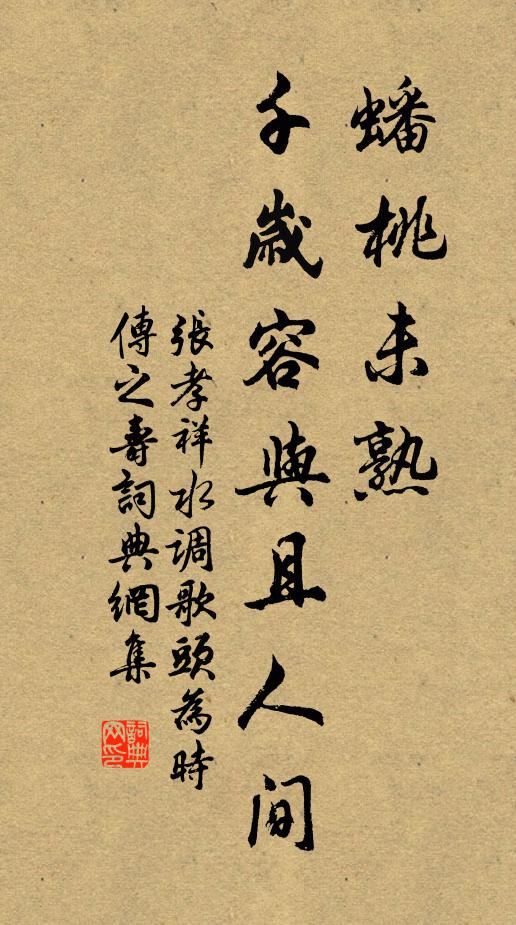 蟠桃未熟
千歲容與且人間
張孝祥水调歌頭為時
傳之壽詞典網集
詞典网印